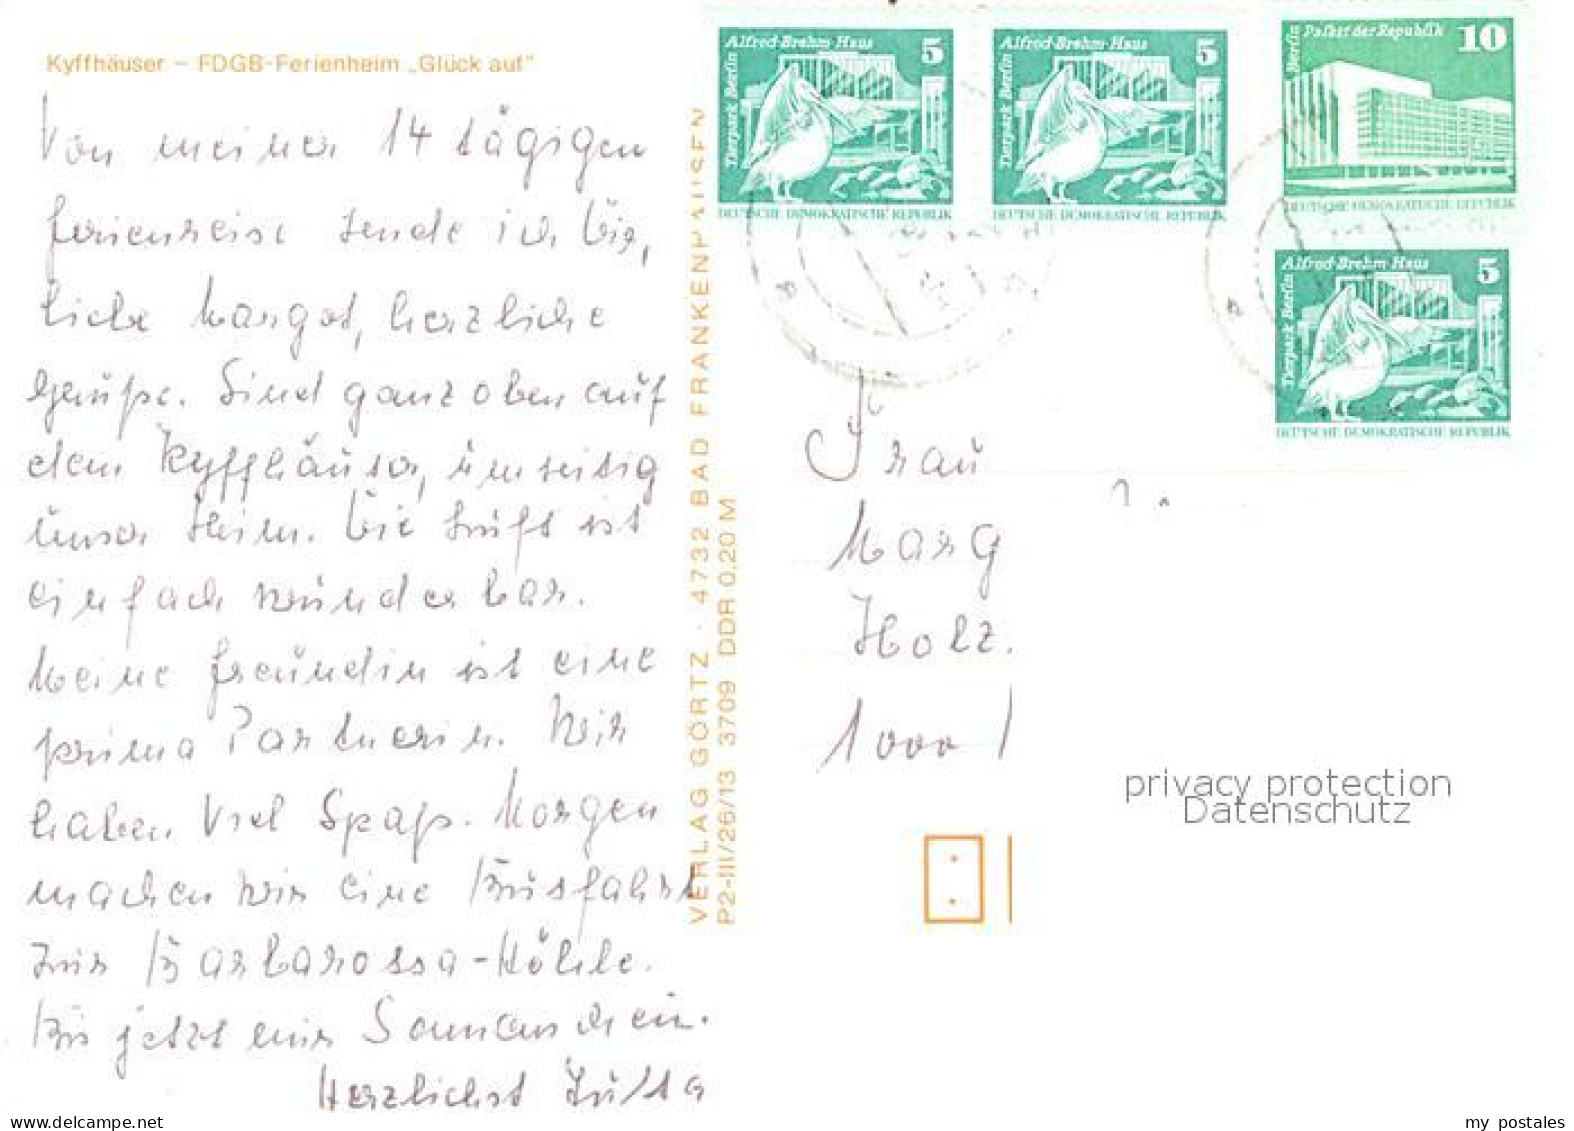 Kyffhäuser – FDGB-Ferienheim „Glück auf“
Von meiner 14 tägigen
Ferienreise sende ich Dir,
liebe Margot, herzliche
Grüße. Sind ganz oben auf
dem Kyffhäuser, umseitig
unser Heim. Die Luft ist
einfach wunderbar.
Meine Freundin ist eine
prima Partnerin. Wir
haben viel Spaß. Morgen
machen wir eine Busfahrt
zur Barbarossa-Höhle.
Bis jetzt nur Sonnenschein.
Herzlichst Jutta
VERLAG GÖRTZ · 4732 BAD FRANKENHAUSEN
P2-III/26/13 3709 DDR 0,20 M
Alfred-Brehm-Haus 5
Tierpark Berlin
DEUTSCHE DEMOKRATISCHE REPUBLIK
Alfred-Brehm-Haus 5
Tierpark Berlin
DEUTSCHE DEMOKRATISCHE REPUBLIK
Palast der Republik 10
Berlin
DEUTSCHE DEMOKRATISCHE REPUBLIK
Alfred-Brehm-Haus 5
Tierpark Berlin
DEUTSCHE DEMOKRATISCHE REPUBLIK
Frau
Marg
Holz.
1000
privacy protection
Datenschutz
my postales